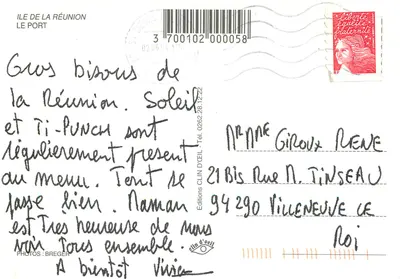 ILE DE LA RÉUNION
LE PORT
3 700102 000058
Liberté
Egalité
Fraternité
Gros bisous de
la Réunion. Soleil
et Ti-PUNCH sont
régulièrement present
au menu. Tout se
passe bien. Maman
est Tres heureuse de nous
voir Tous ensemble.
A bientôt
PHOTOS : BREGER
Editions CLIN D'ŒIL - Tél. 0262.28.12.22
Clin d'œil
Mr Mme GIROUX RENE
21 Bis Rue M. TINSEAU
94290 VILLENEUVE LE
ROI